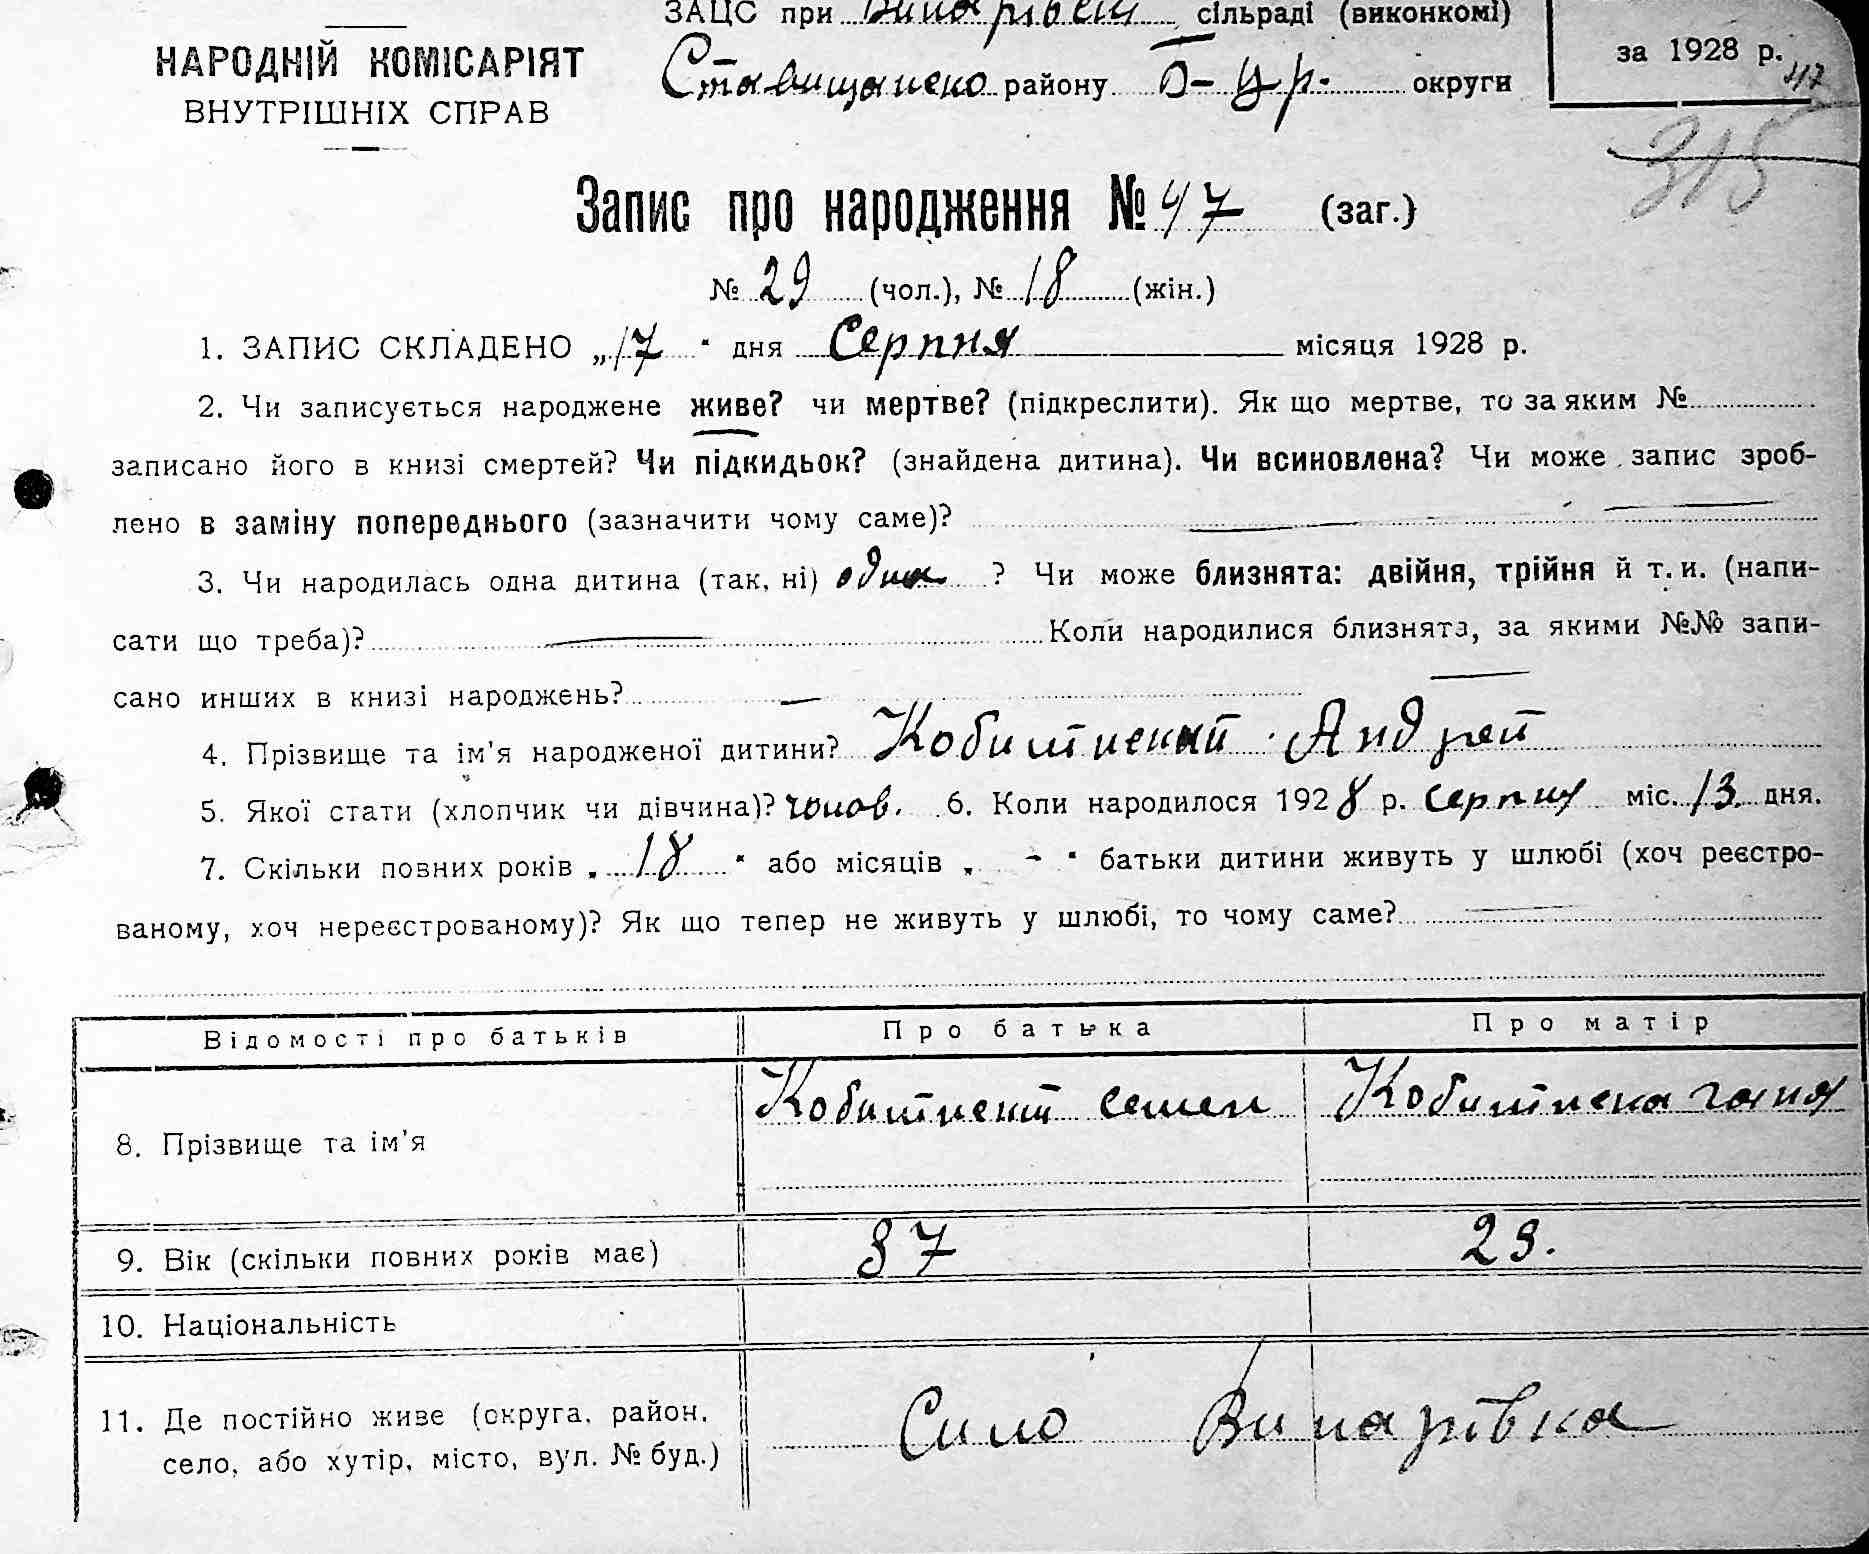 ЗАЦС при Винарівській сільраді (виконкомі)
НАРОДНІЙ КОМІСАРІЯТ
ВНУТРІШНІХ СПРАВ
Ставищанско району Б-Цр. округи
за 1928 р.
47
315
Запис про народження № 47 (заг.)
№ 29 (чол.), № 18 (жін.)
1. ЗАПИС СКЛАДЕНО „17" дня Серпня місяця 1928 р.
2. Чи записується народжене живе? чи мертве? (підкреслити). Як що мертве, то за яким №
записано його в книзі смертей? Чи підкидьок? (знайдена дитина). Чи всиновлена? Чи може запис зроб-
лено в заміну попереднього (зазначити чому саме)? —
3. Чи народилась одна дитина (так, ні) одна ? Чи може близнята: двійня, трійня й т. и. (напи-
сати що треба)? — Коли народилися близнята, за якими №№ запи-
сано инших в книзі народжень? —
4. Прізвище та ім'я народженої дитини? Андрей
5. Якої стати (хлопчик чи дівчина)? чолов. 6. Коли народилося 1928 р. серпня міс. 13 дня.
7. Скільки повних років „18" або місяців „-" батьки дитини живуть у шлюбі (хоч реєстро-
ваному, хоч нереєстрованому)? Як що тепер не живуть у шлюбі, то чому саме? —
Відомості про батьків Про батька Про матір
8. Прізвище та ім'я Семен
9. Вік (скільки повних років має) 37
10. Національність
11. Де постійно живе (округа, район,
село, або хутір, місто, вул. № буд.) Село Винарівка